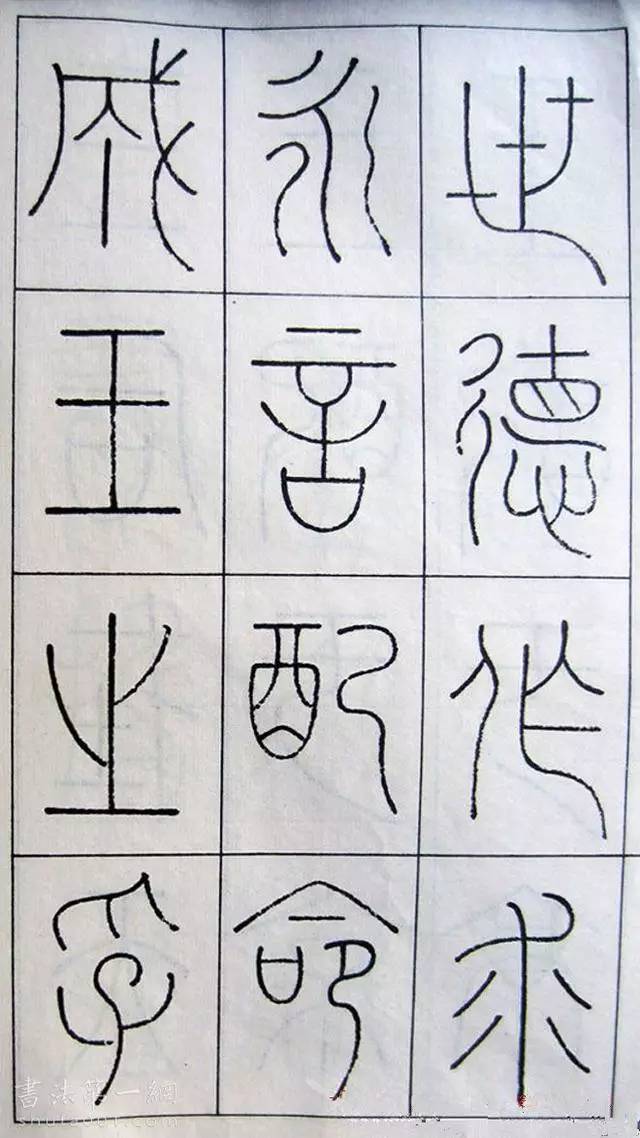 世德作求
永言配命
成王之孚
書法第一網